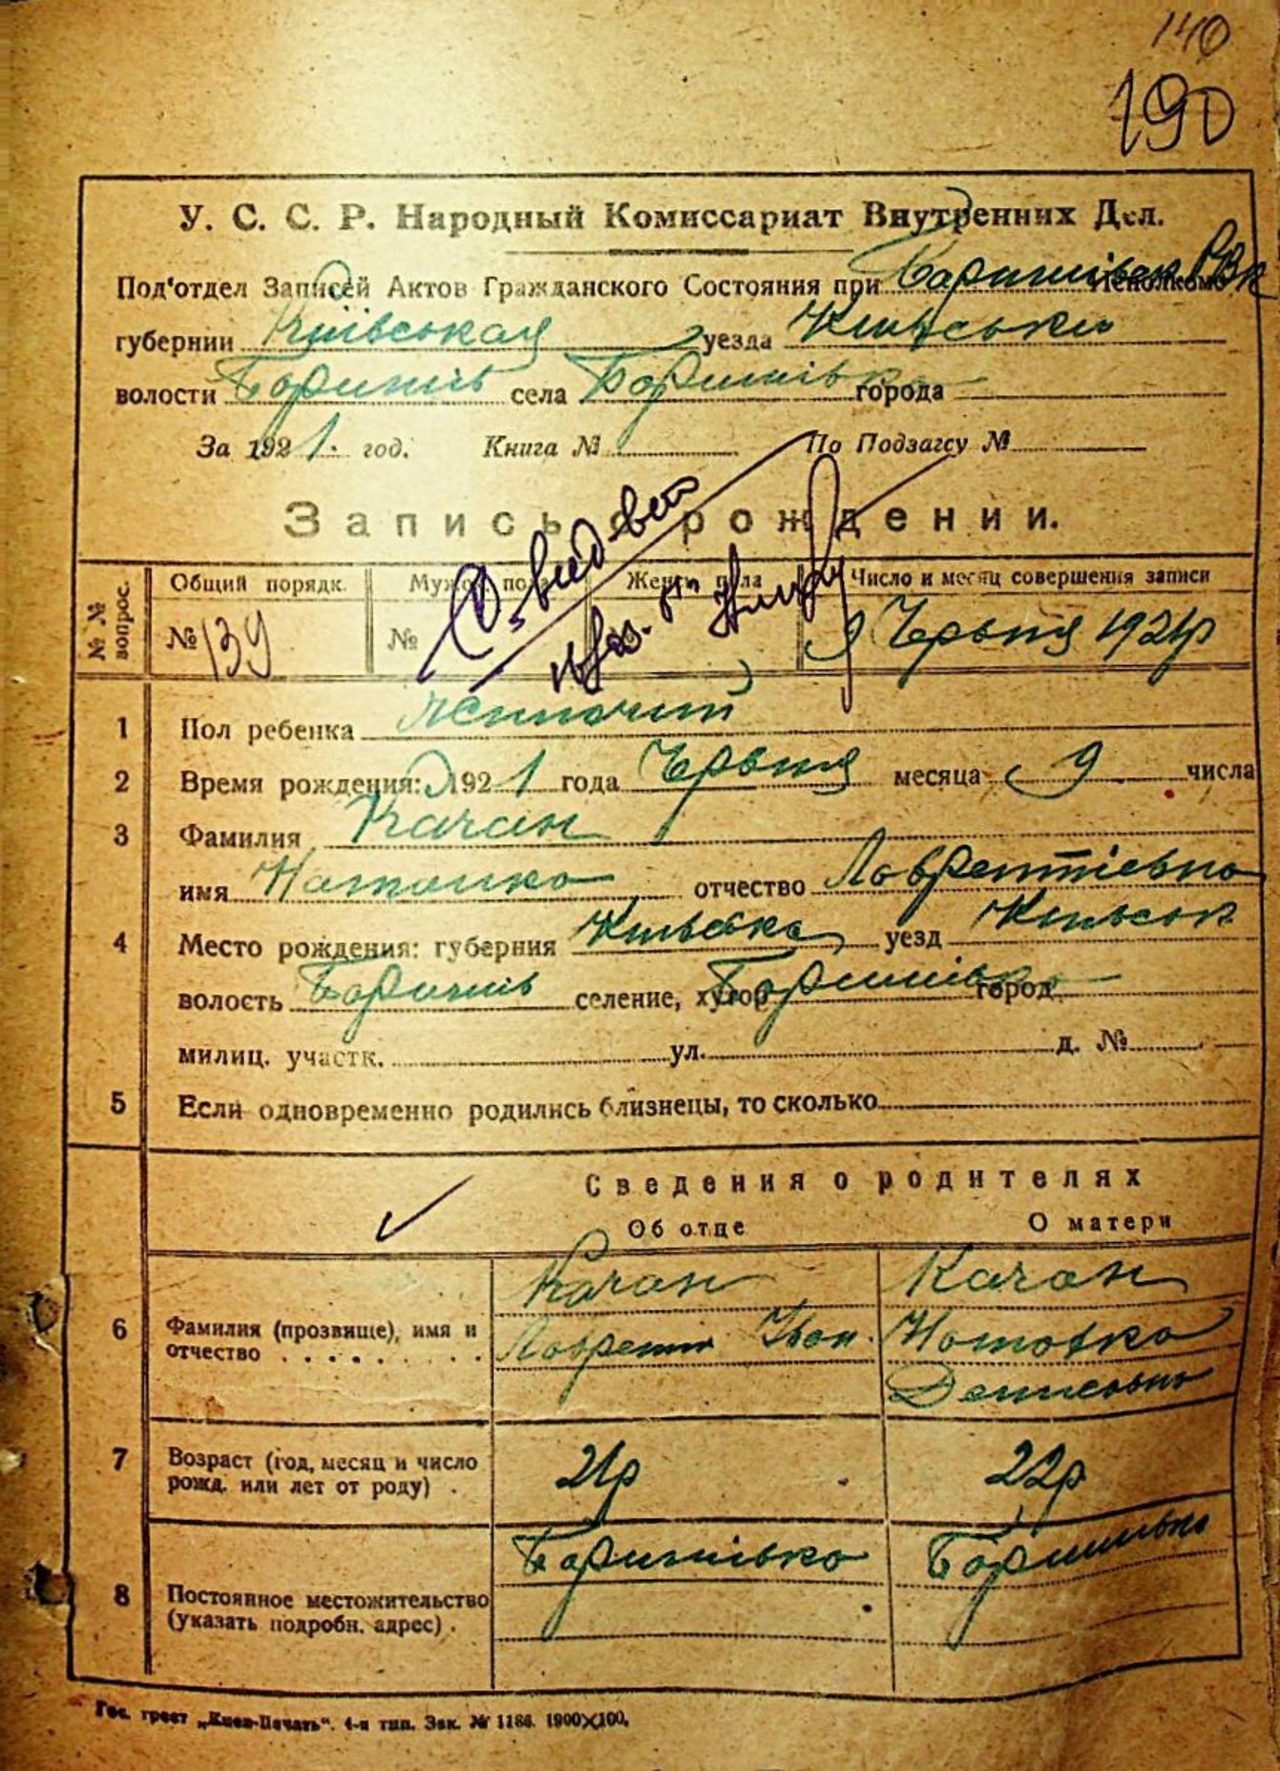 140
190
У. С. С. Р. Народный Комиссариат Внутренних Дел.
Под'отдел Записей Актов Гражданского Состояния при Баришівск РВК Исполкоме
губернии Київськая уезда Київськи
волости Баришів села Баришівка города
За 1921. год. Книга № По Подзагсу №
Запись о рождении.
№№ вопрос. Общий порядк. Мужск. пола Женск. пола Число и месяц совершения записи
№ 139 № 9 Червня 1921р
1 Пол ребенка жіночий
2 Время рождения: 1921 года Червня месяца 9 числа
3 Фамилия Качан
имя Наталка отчество Лаврентіевна
4 Место рождения: губерния Київська уезд Київськ
волость Баришів селение, хутор Баришівка город
милиц. участк. ул. д. №
5 Если одновременно родились близнецы, то сколько
Сведения о родителях
Об отце О матери
6 Фамилия (прозвище), имя и отчество Качан Качан
Лаврентій Іван.
Денисовна
7 Возраст (год, месяц и число рожд. или лет от роду) . 21р 22р
8 Постоянное местожительство (указать подробн. адрес) . Баришівка Баришівка
Гос. трест „Киев-Печать“. 4-я тип. Зак. № 1186. 1900×100.